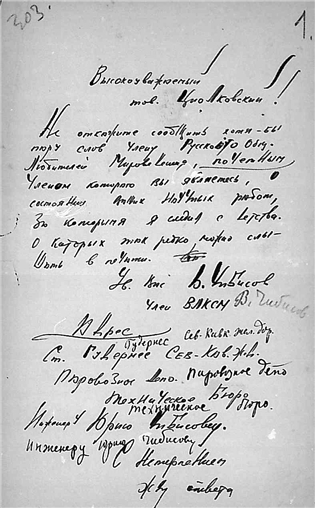 303.
1.
Высокоуважаемый
тов. Циолковский!
Не откажите сообщить хотя-бы
пару слов члену Русского Общ.
Любителей Мироведения, почетным
членом которого вы являетесь, о
состоянии Ваших научных работ,
за которыми я следил с детства.
О которых так редко можно слы-
шать в печати.
Ув. Вас В. Чибисов
член ВЛКСМ В. Чибисов
Адрес
Гудермес Сев. Кавк. жел. дор.
Ст. Гудермес Сев-Кав. ж.д.
Паровозное депо. Паровозное депо
Техническое Бюро
Техническое Бюро.
Инженеру Юрию Чибисову.
инженеру Юрию Чибисову
Нетерпением
жду ответа